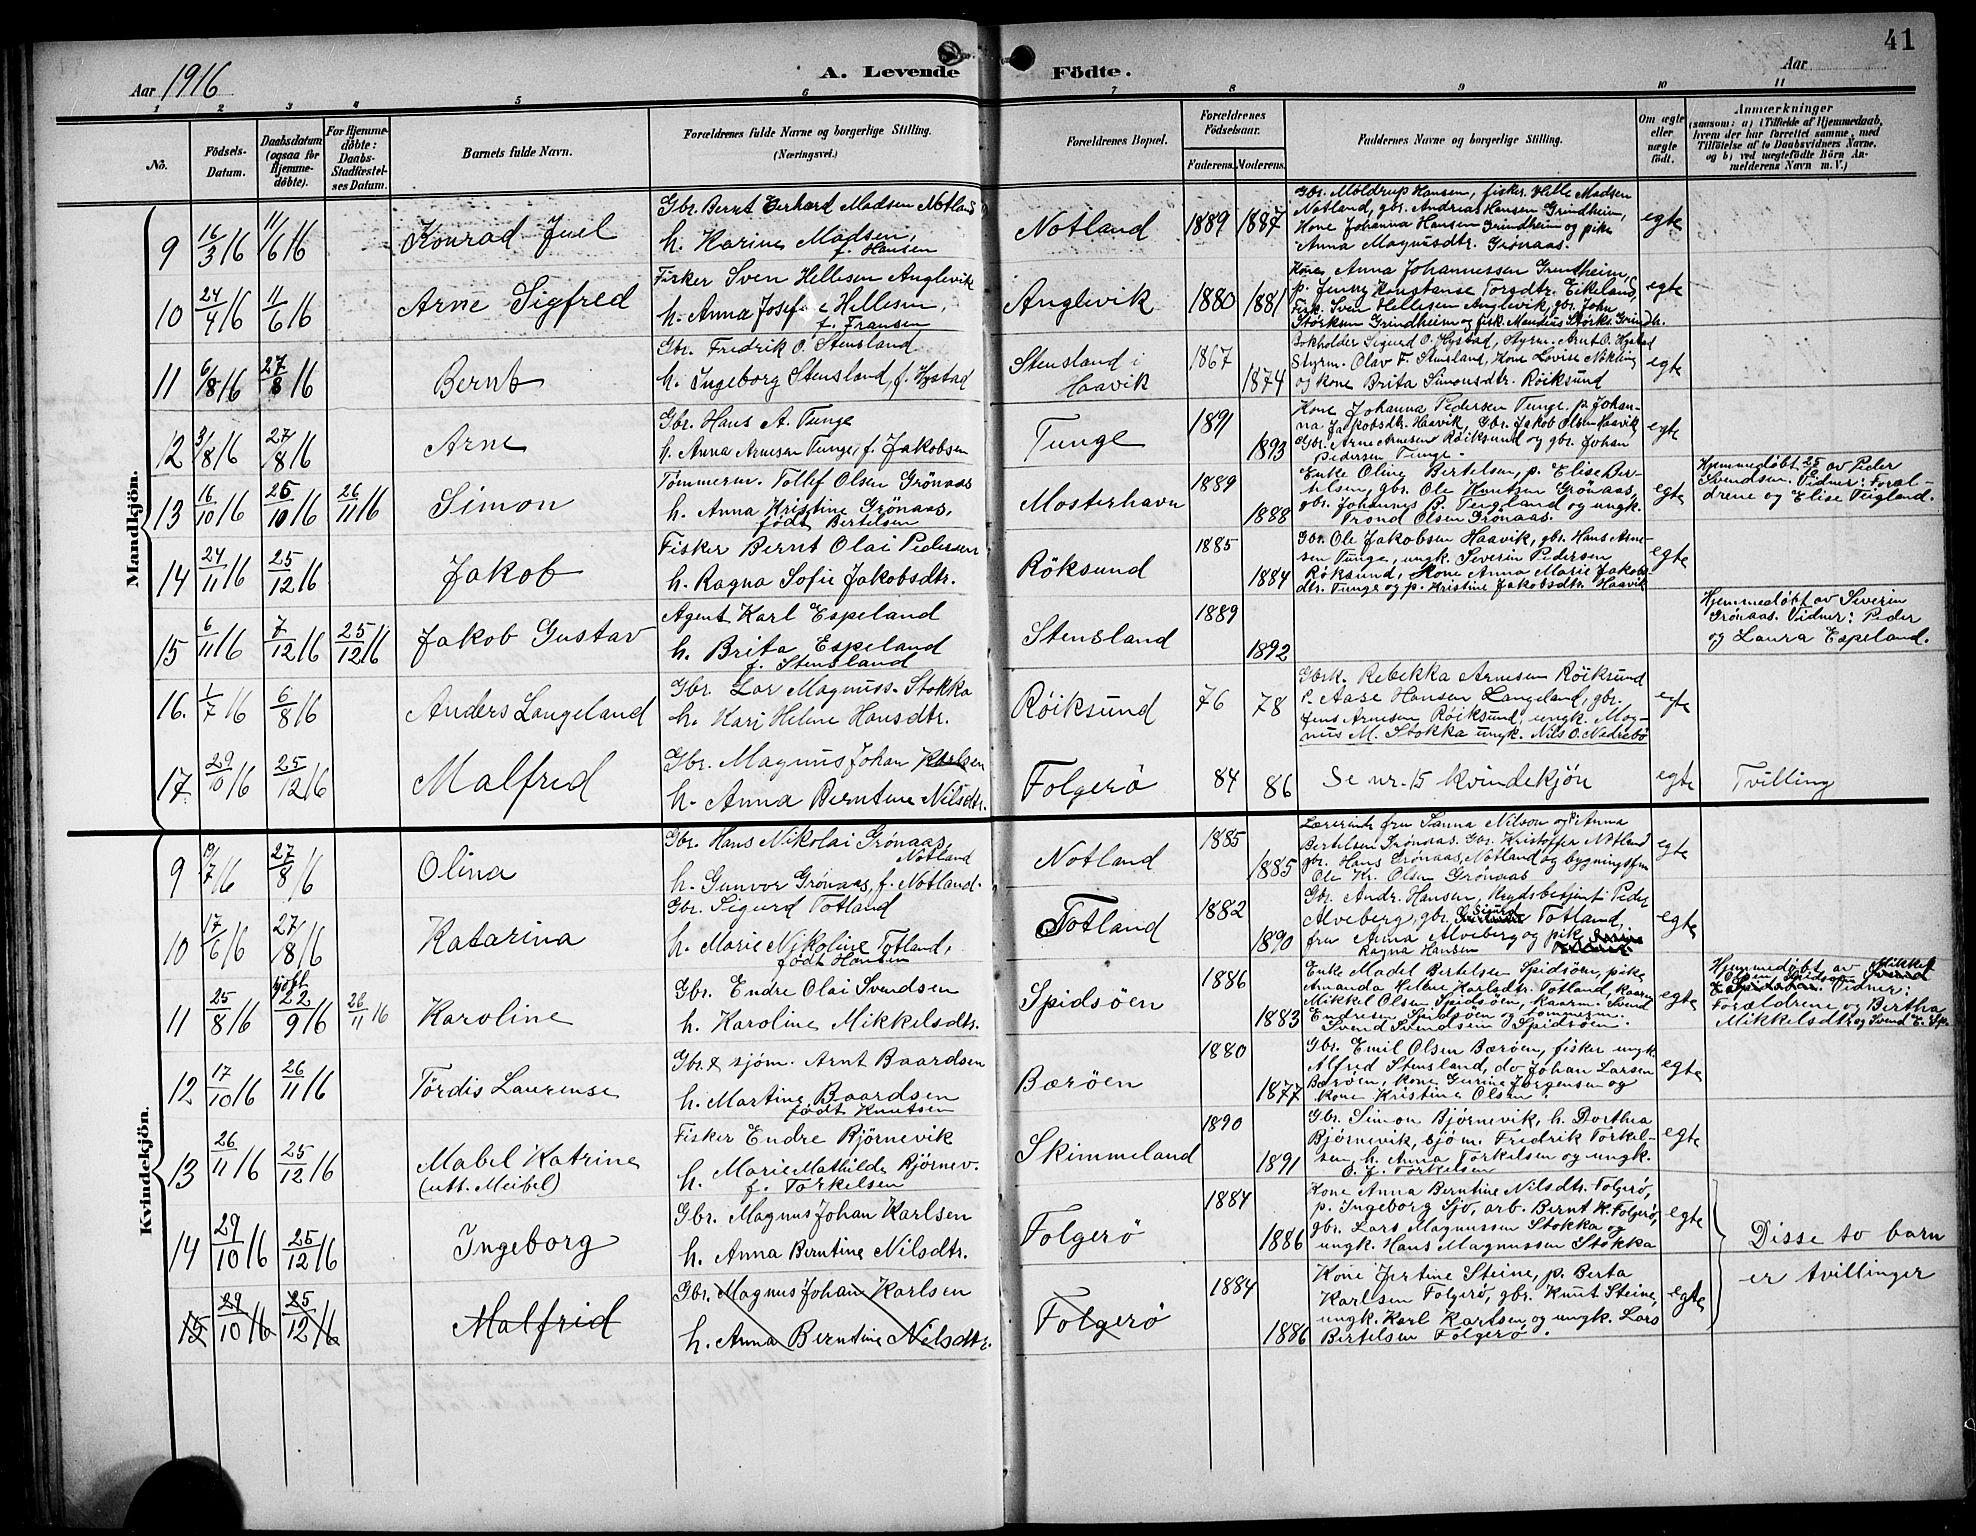 41
Aar 1916
A. Levende Födte.
Aar
1 2 3 4 5 6 7 8 9 10 11
No.
Födsels-Datum.
Daabsdatum (ogsaa for Hjemmedöbte).
For Hjemmedöbte: Daabs-Stadfæstelses Datum.
Barnets fulde Navn.
Forældrenes fulde Navne og borgerlige Stilling. (Næringsvei.)
Forældrenes Bopæl.
Forældrenes Födselsaar.
Faderens. Moderens.
Faddernes Navne og borgerlige Stilling.
Om ægte eller uægte født.
Anmærkninger
(saasom: a) i Tilfælde af Hjemmedaab,
hvem der har forrettet samme, med
Tilföielse af to Daabsvidners Navne.
og b) ved uægtefödte Börn An-
melderens Navn m. V.)
Mandkjön.
9 16/3 16 11/6 16 Konrad Juel
Gbr. Bernt Gerhard Madsen Notland
h. Karine Madsen,
f. Hansen
Notland 1889 1887
Gbr. Moldrup Hansen, fisker Helle Madsen
Notland, gbr. Andrias Hansen Grindheim,
Kone Johanna Hansen Grindheim og pike
Anna Magnusdtr. Grønaas.
egte
10 24/4 16 11/6 16 Arne Sigfred
Fisker Sven Hellesen Anglevik
h. Anna Josefine Hellesen,
f. Fransen
Anglevik 1880 1881
Kone Anna Johannessen Grindheim,
p. Jenny Konstanse Torsdtr. Eikeland,
Fisk. Sven Hellesen Anglevik, gbr. John
Størksen Grindheim og fisk. Mandius Størks. Grindh.
egte
11 6/8 16 27/8 16 Bernt
Gbr. Fredrik O. Stensland
h. Ingeborg Stensland, f. Hystad
Stensland i Haavik 1867 1874
Bokholder Sigurd O. Hystad, Styrm. Arnt O. Hystad
Styrm. Olav F. Stensland, Kone Lovise Nikling
og kone Brita Simonsdtr. Røiksund
egte
12 3/8 16 27/8 16 Arne
Gbr. Hans A. Tunge
h. Anna Arnesen Tunge, f. Jakobsen
Tunge 1891 1893
Kone Johanna Pedersen Tunge. p. Johan-
na Jakobsdtr. Haavik, Gbr. Jakob Olsen Haavik
Gbr. Arne Arnesen Røiksund og gbr. Johan
Pedersen Tunge.
egte
13 16/10 16 25/10 16 26/11 16 Simon
Tømmerm. Tollef Olsen Grönaas
h. Anna Kristine Grönaas,
født Bertelsen
Mosterhavn 1889 1888
Enke Oline Bertelsen, p. Elise Ber-
telsen, gbr. Ole Knutsen Grönaas,
gbr. Johannes P. Teigland og ungk.
Trond Olsen Grönaas.
egte
Hjemmedøbt 25/10 av Peder
Svendsen. Vidner: Foræl-
drene og Elise Teigland.
14 24/11 16 25/12 16 Jakob
Fisker Bernt Olai Pedersen
h. Ragna Sofie Jakobsdtr.
Röksund 1885 1884
Gbr. Ole Jakobsen Haavik, gbr. Hans Arne-
sen Tunge, ungk. Severin Pedersen
Röksund, Kone Anna Marie Jakobs-
dtr. Tunge og p. Kristine Jakobsdtr. Haavik
egte
15 6/11 16 7/12 16 25/12 16 Jakob Gustav
Agent Karl Espeland
h. Brita Espeland
f. Stensland
Stensland 1889 1892
Hjemmedøbt av Siverin
Grønaas. Vidner: Peder
og Laura Espeland.
16. 1/7 16 6/8 16 Anders Langeland
Gbr. Lar Magnuss. Stokka
h. Kari Helene Hansdtr.
Röiksund 76 78
Gbrk. Rebekka Arnesen Røiksund
P. Aase Hansen Langeland, gbr.
Jens Arnesen Røiksund, ungk. Mag-
nus M. Stokka ungk. Nils O. Nedrebø
egte
17 29/10 16 25/12 16 Malfrid
Gbr. Magnus Johan Karlsen
h. Anna Berntine Nilsdtr.
Folgerö 84 86
Se nr. 15 kvindekjön
egte
Tvilling
Kvindekjön.
9 19/7 16 27/8 16 Olina
Gbr. Hans Nikolai Grönaas,
Notland
h. Gunvor Grönaas, f. Notland.
Notland 1885 1885
Lærerinde fru Sanna Nilson og p. Anna
Bertelsen Grønaas. Gbr. Kristoffer Notland
gbr. Hans Grönaas, Notland og bygningsfm
Ole Kr. Olsen Grönaas
egte
10 17/6 16 27/8 16 Katarina
Gbr. Sigurd Totland
h. Marie Nikoline Totland,
født Hansen
Totland 1882 1890
Gbr. Andr. Hansen, Rugdsbetjent Peder
Alveberg, gbr. Sigurd Totland,
fru Anna Alveberg og pik
Ragna Hansen
egte
11 25/8 16 22/9 16 26/11 16 Karoline
Gbr. Endre Olai Svendsen
h. Karoline Mikkelsdtr.
Spidsöen 1886 1883
Enke Madel Bertelsen Spidsöen, pike
Amanda Helene Karlsdtr. Totland, Kaarm
Mikkel Olsen Spidsöen, kaarm. Svend
Endresen Spidsöen og tømmerm.
Svend Svendsen Spidsöen.
egte
Hjemmedøbt av Mikkel
Olsen Spidsøen Vidner:
Forældrene og Bertha
Mikkelsdtr og Svend E. Sp.
12 17/10 16 26/11 16 Tördis Laurense
Gbr. & sjöm. Arnt Baardsen
h. Martine Baardsen
født Knutsen
Bæröen 1880 1877
Gbr. Emil Olsen Bæröen, fisker ungk.
Alfred Stensland, do Johan Larsen
Bæröen, kone Gurine Jørgensen og
kone Kristine Olsen.
egte
13 26/11 16 25/12 16 Mabel Katrine
(utt. Meibel)
Fisker Endre Björnevik
h. Marie Mathilde Björnev.
f. Torkelsen
Skimmeland 1890 1891
Gbr. Simon Bjørnevik, h. Dorthea
Bjørnevik, sjöm. Fredrik Torkel-
sen, h. Anna Torkelsen og ungk.
O. J. Torkelsen
egte
14 29/10 16 25/12 16 Ingeborg
Gbr. Magnus Johan Karlsen
h. Anna Berntine Nilsdtr.
Folgerö 1884 1886
Kone Anna Berntine Nilsdtr. Folgerø,
p. Ingeborg Sjo, arb. Bernt K. Folgerø,
gbr. Lars Magnussen Stokka og
ungk. Hans Magnussen Stokka
egte
Disse to barn
er tvillinger
15 29/10 16 25/12 16 Malfrid
Gbr. Magnus Johan Karlsen
h. Anna Berntine Nilsdtr.
Folgerö 1884 1886
Kone Jertine Steine, p. Berta
Karlsen Folgerø, gbr. Knut Steine,
ungk. Karl Karlsen og ungk. Lars
Bertelsen Folgerø.
egte